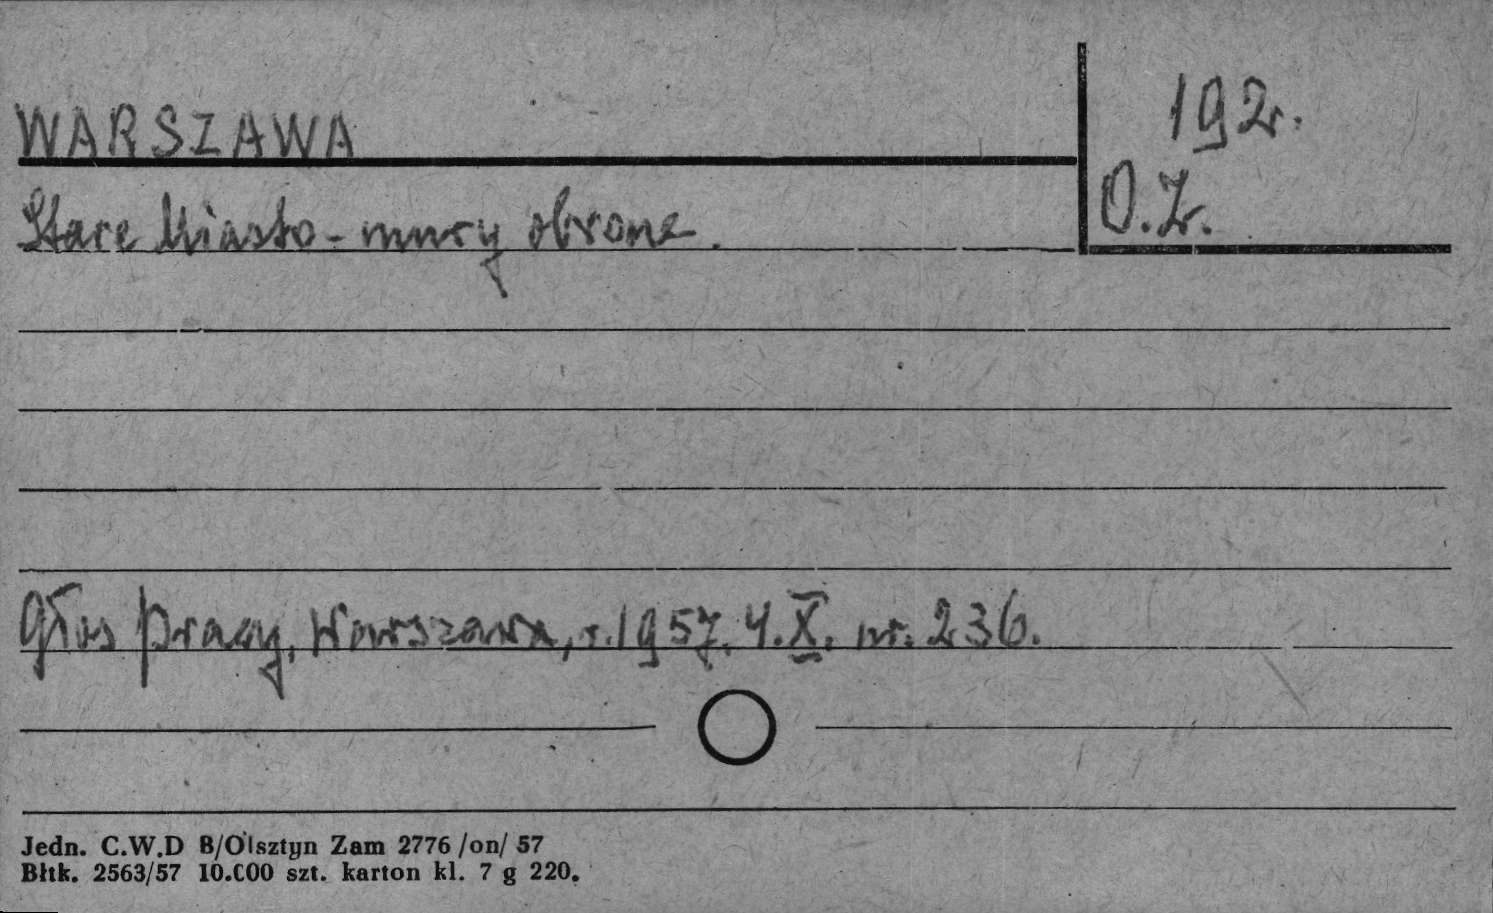 WARSZAWA
192r.
O.Z.
Stare Miasto - mury obrone.
Głos pracy, Warszawa, r. 1957. 4. X. nr. 236.
Jedn. C.W.D B/Olsztyn Zam 2776 /on/ 57
Błtk. 2563/57 10.000 szt. karton kl. 7 g 220.